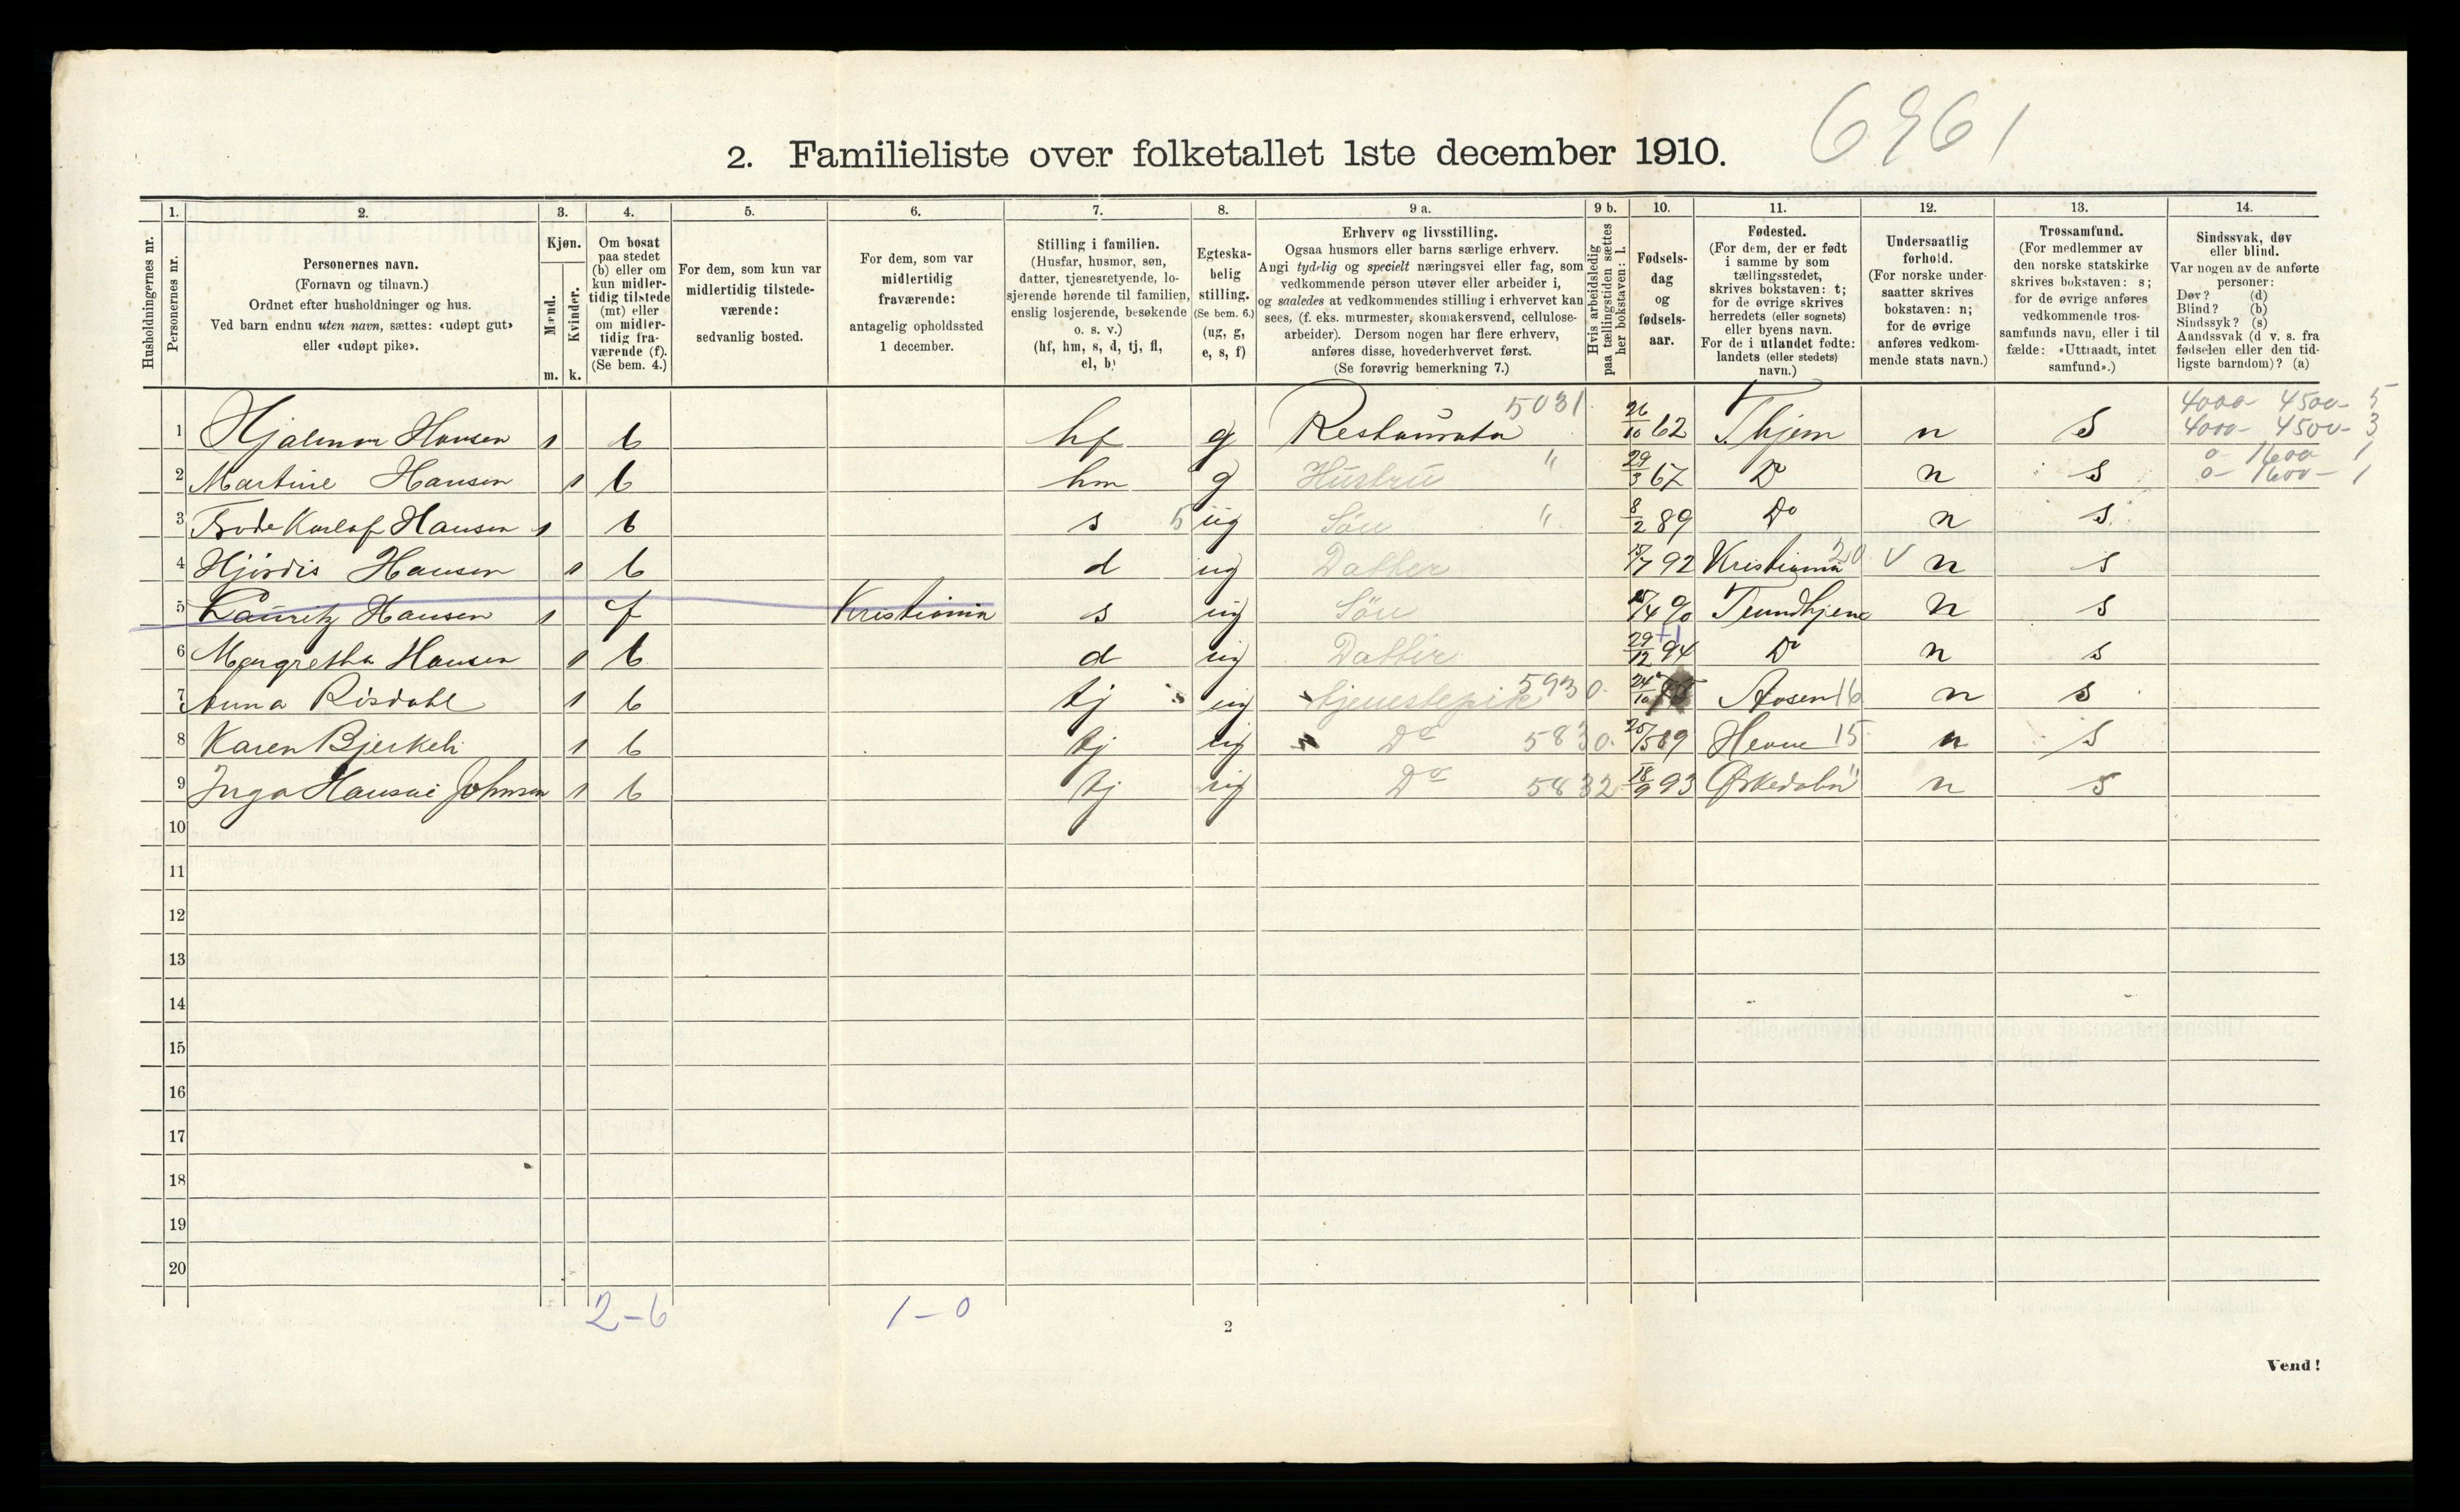 6961
2. Familieliste over folketallet 1ste december 1910.
Husholdningernes nr.
1. Personernes nr.
2. Personernes navn.
(Fornavn og tilnavn.)
Ordnet efter husholdninger og hus.
Ved barn endnu uten navn, sættes: «udøpt gut»
eller «udøpt pike».
3. Kjøn.
Mænd. m.
Kvinder. k.
4. Om bosat
paa stedet
(b) eller om
kun midler-
tidig tilstede
(mt) eller
om midler-
tidig fra-
værende (f).
(Se bem. 4.)
5. For dem, som kun var
midlertidig tilstede-
værende:
sedvanlig bosted.
6. For dem, som var
midlertidig
fraværende:
antagelig opholdssted
1 december.
7. Stilling i familien.
(Husfar, husmor, søn,
datter, tjenestetyende, lo-
sjerende hørende til familien,
enslig losjerende, besøkende
o. s. v.)
(hf, hm, s, d, tj, fl,
el, b)
8. Egteska-
belig
stilling.
(Se bem. 6.)
(ug, g,
e, s, f)
9 a. Erhverv og livsstilling.
Ogsaa husmors eller barns særlige erhverv.
Angi tydelig og specielt næringsvei eller fag, som
vedkommende person utøver eller arbeider i,
og saaledes at vedkommendes stilling i erhvervet kan
sees, (f. eks. murmester, skomakersvend, cellulose-
arbeider). Dersom nogen har flere erhverv,
anføres disse, hovederhvervet først.
(Se forøvrig bemerkning 7.)
9 b. Hvis arbeidsledig
paa tællingstiden sættes
her bokstaven: l.
10. Fødsels-
dag
og
fødsels-
aar.
11. Fødested.
(For dem, der er født
i samme by som
tællingsstedet,
skrives bokstaven: t;
for de øvrige skrives
herredets (eller sognets)
eller byens navn.
For de i utlandet fødte:
landets (eller stedets)
navn.)
12. Undersaatlig
forhold.
(For norske under-
saatter skrives
bokstaven: n;
for de øvrige
anføres vedkom-
mende stats navn.)
13. Trossamfund.
(For medlemmer av
den norske statskirke
skrives bokstaven: s;
for de øvrige anføres
vedkommende tros-
samfunds navn, eller i til
fælde: «Uttraadt, intet
samfund».)
14. Sindssvak, døv
eller blind.
Var nogen av de anførte
personer:
Døv? (d)
Blind? (b)
Sindssyk? (s)
Aandssvak (d v. s. fra
fødselen eller den tid-
ligste barndom)? (a)
4000- 4500- 5
4000- 4500- 3
0- 1600 1
0- 1600- 1
1 Hjalmar Hansen 1 b hf g 5031 Restauratør 26/10 62 Thjem n s
2 Martine Hansen 1 b hm g Hustru " 29/3 67 Do n s
3 Hansen 1 b s 5 ug Søn " 8/2 89 Do n s
4 Hjørdis Hansen 1 b d ug Datter 92 Kristiania 20 v n s
5 Lauritz Hansen 1 f Kristiania s ug Søn 90 n s
6 Margretha Hansen 1 b d ug Datter 29/12 94 Do n s
7 Anna Risdahl 1 b tj ug tjenestepik 5930. 24/10 Aasen 16 n s
8 Karen Bjerkeli 1 b tj ug Do 5830. 25/5 89 Hevne 15 n s
9 Inga Johnsen 1 b tj ug Do 5832 18/9 93 n s
10
11
12
13
14
15
16
17
18
19
20
2-6
1-0
2
Vend!